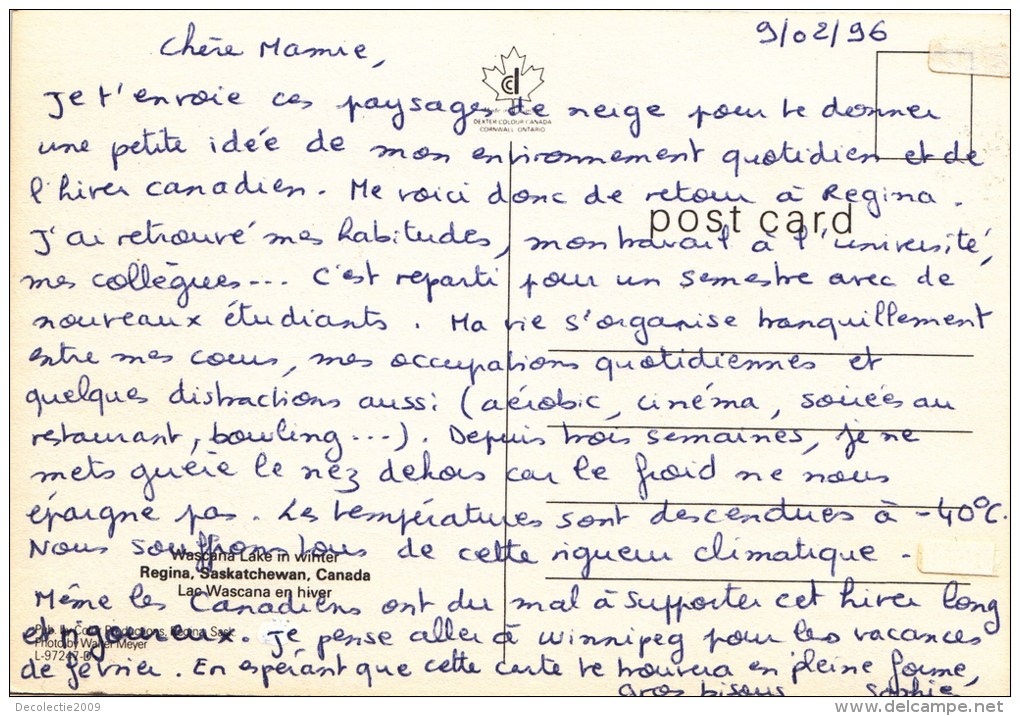 9/02/96
Chère Mamie,
Je t'envoie ces paysages de neige pour te donner
une petite idée de mon environnement quotidien et de
l'hiver canadien. Me voici donc de retour à Regina.
J'ai retrouvé mes habitudes, mon travail à l'université,
mes collègues... C'est reparti pour un semestre avec de
nouveaux étudiants. Ma vie s'organise tranquillement
entre mes cours, mes occupations quotidiennes et
quelques distractions aussi (aérobic, cinéma, soirées au
restaurant, bowling...). Depuis trois semaines, je ne
mets guère le nez dehors car le froid ne nous
épargne pas. Les températures sont descendues à -40°C.
Nous souffrons tous de cette rigueur climatique.
Même les Canadiens ont du mal à supporter cet hiver long
et rigoureux. Je pense aller à Winnipeg pour les vacances
de février. En espérant que cette carte te trouvera en pleine forme,
Gros bisous Sophie
DEXTER COLOUR CANADA
CORNWALL ONTARIO
post card
Wascana Lake in winter
Regina, Saskatchewan, Canada
Lac Wascana en hiver
Productions, Regina, Sask
Photo by Walter Meyer
L-97247-D
Decolectie2009
www.delcampe.net